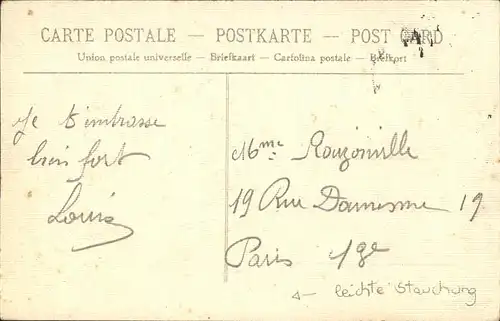 CARTE POSTALE — POSTKARTE — POST CARD
Union postale universelle — Briefkaart — Cartolina postale — Brefkort
Je t'embrasse
bien fort
Louis
Mme Rouzonville
19 Rue Damesme 19
Paris 13e
leichte Stauchung